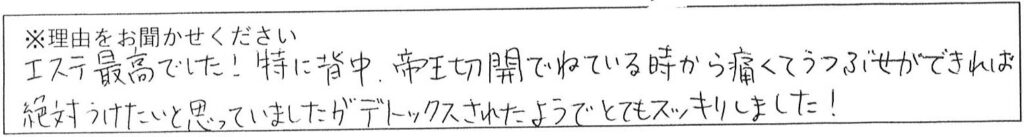 ※理由をお聞かせください
エステ最高でした！特に背中、帝王切開でねている時から痛くてうつぶせができれば
絶対うけたいと思っていましたがデトックスされたようでとてもスッキリしました！